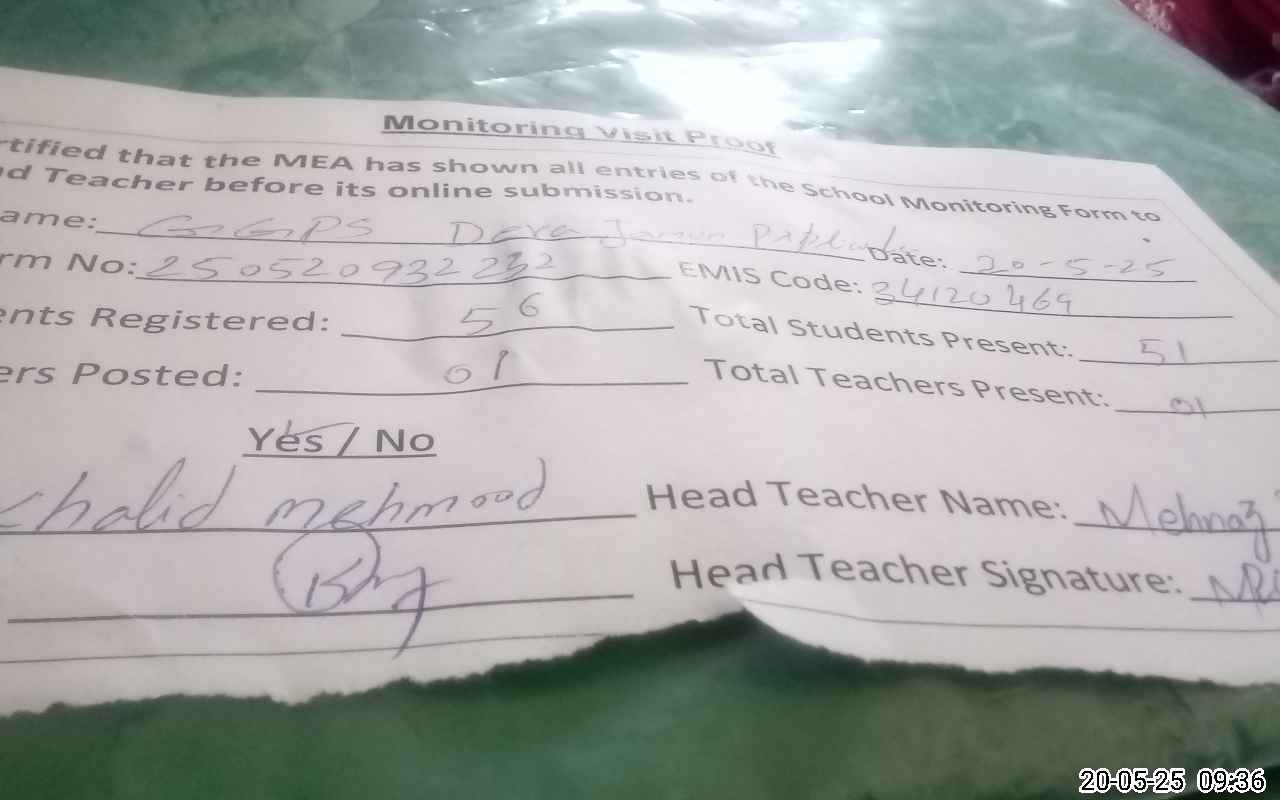 Monitoring Visit Proof
rtified that the MEA has shown all entries of the School Monitoring Form to
d Teacher before its online submission.
ame: GGPS Dera Date: 20-5-25
rm No: 250520932232 EMIS Code: 34120469
ents Registered: 56 Total Students Present: 51
ers Posted: 01 Total Teachers Present: 01
Yes / No
Khalid mehmood Head Teacher Name: Mehnaz
Head Teacher Signature:
20-05-25 09:36